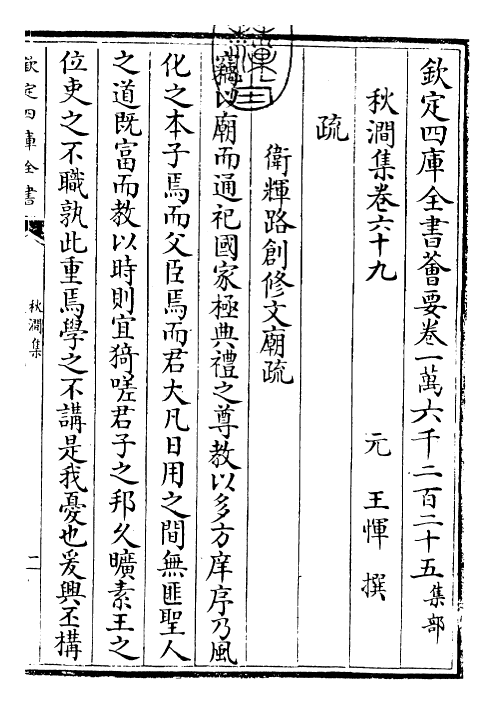 欽定四庫全書薈要卷一萬六千二百二十五集部
秋澗集卷六十九
元 王惲 撰
疏
衛輝路創修文廟疏
竊以廟而通祀國家極典禮之尊教以多方庠序乃風
化之本子焉而父臣焉而君大凡日用之間無匪聖人
之道既富而教以時則宜猗嗟君子之邦久曠素王之
位吏之不職孰此重焉學之不講是我憂也爰興丕構
欽定四庫全書
秋澗集